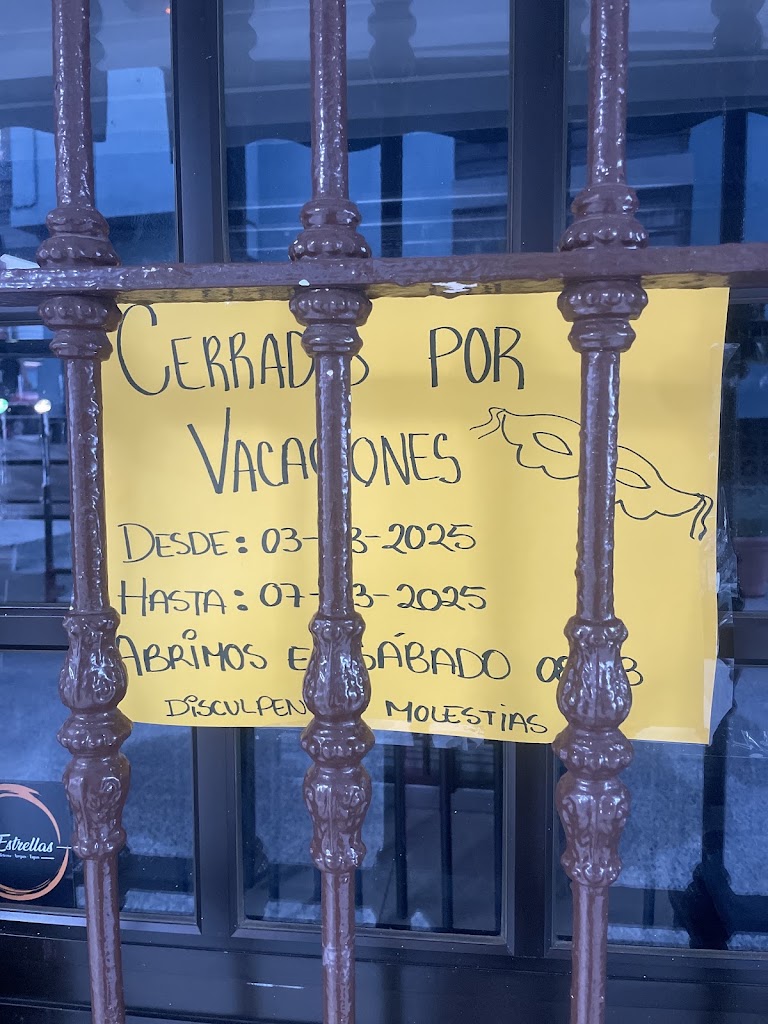 CERRADO POR
VACACIONES
DESDE: 03-03-2025
HASTA: 07-03-2025
ABRIMOS EL SÁBADO 08-03
DISCULPEN MOLESTIAS
Estrellas